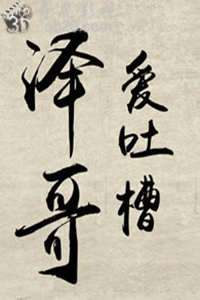 泽哥
爱吐槽
3D